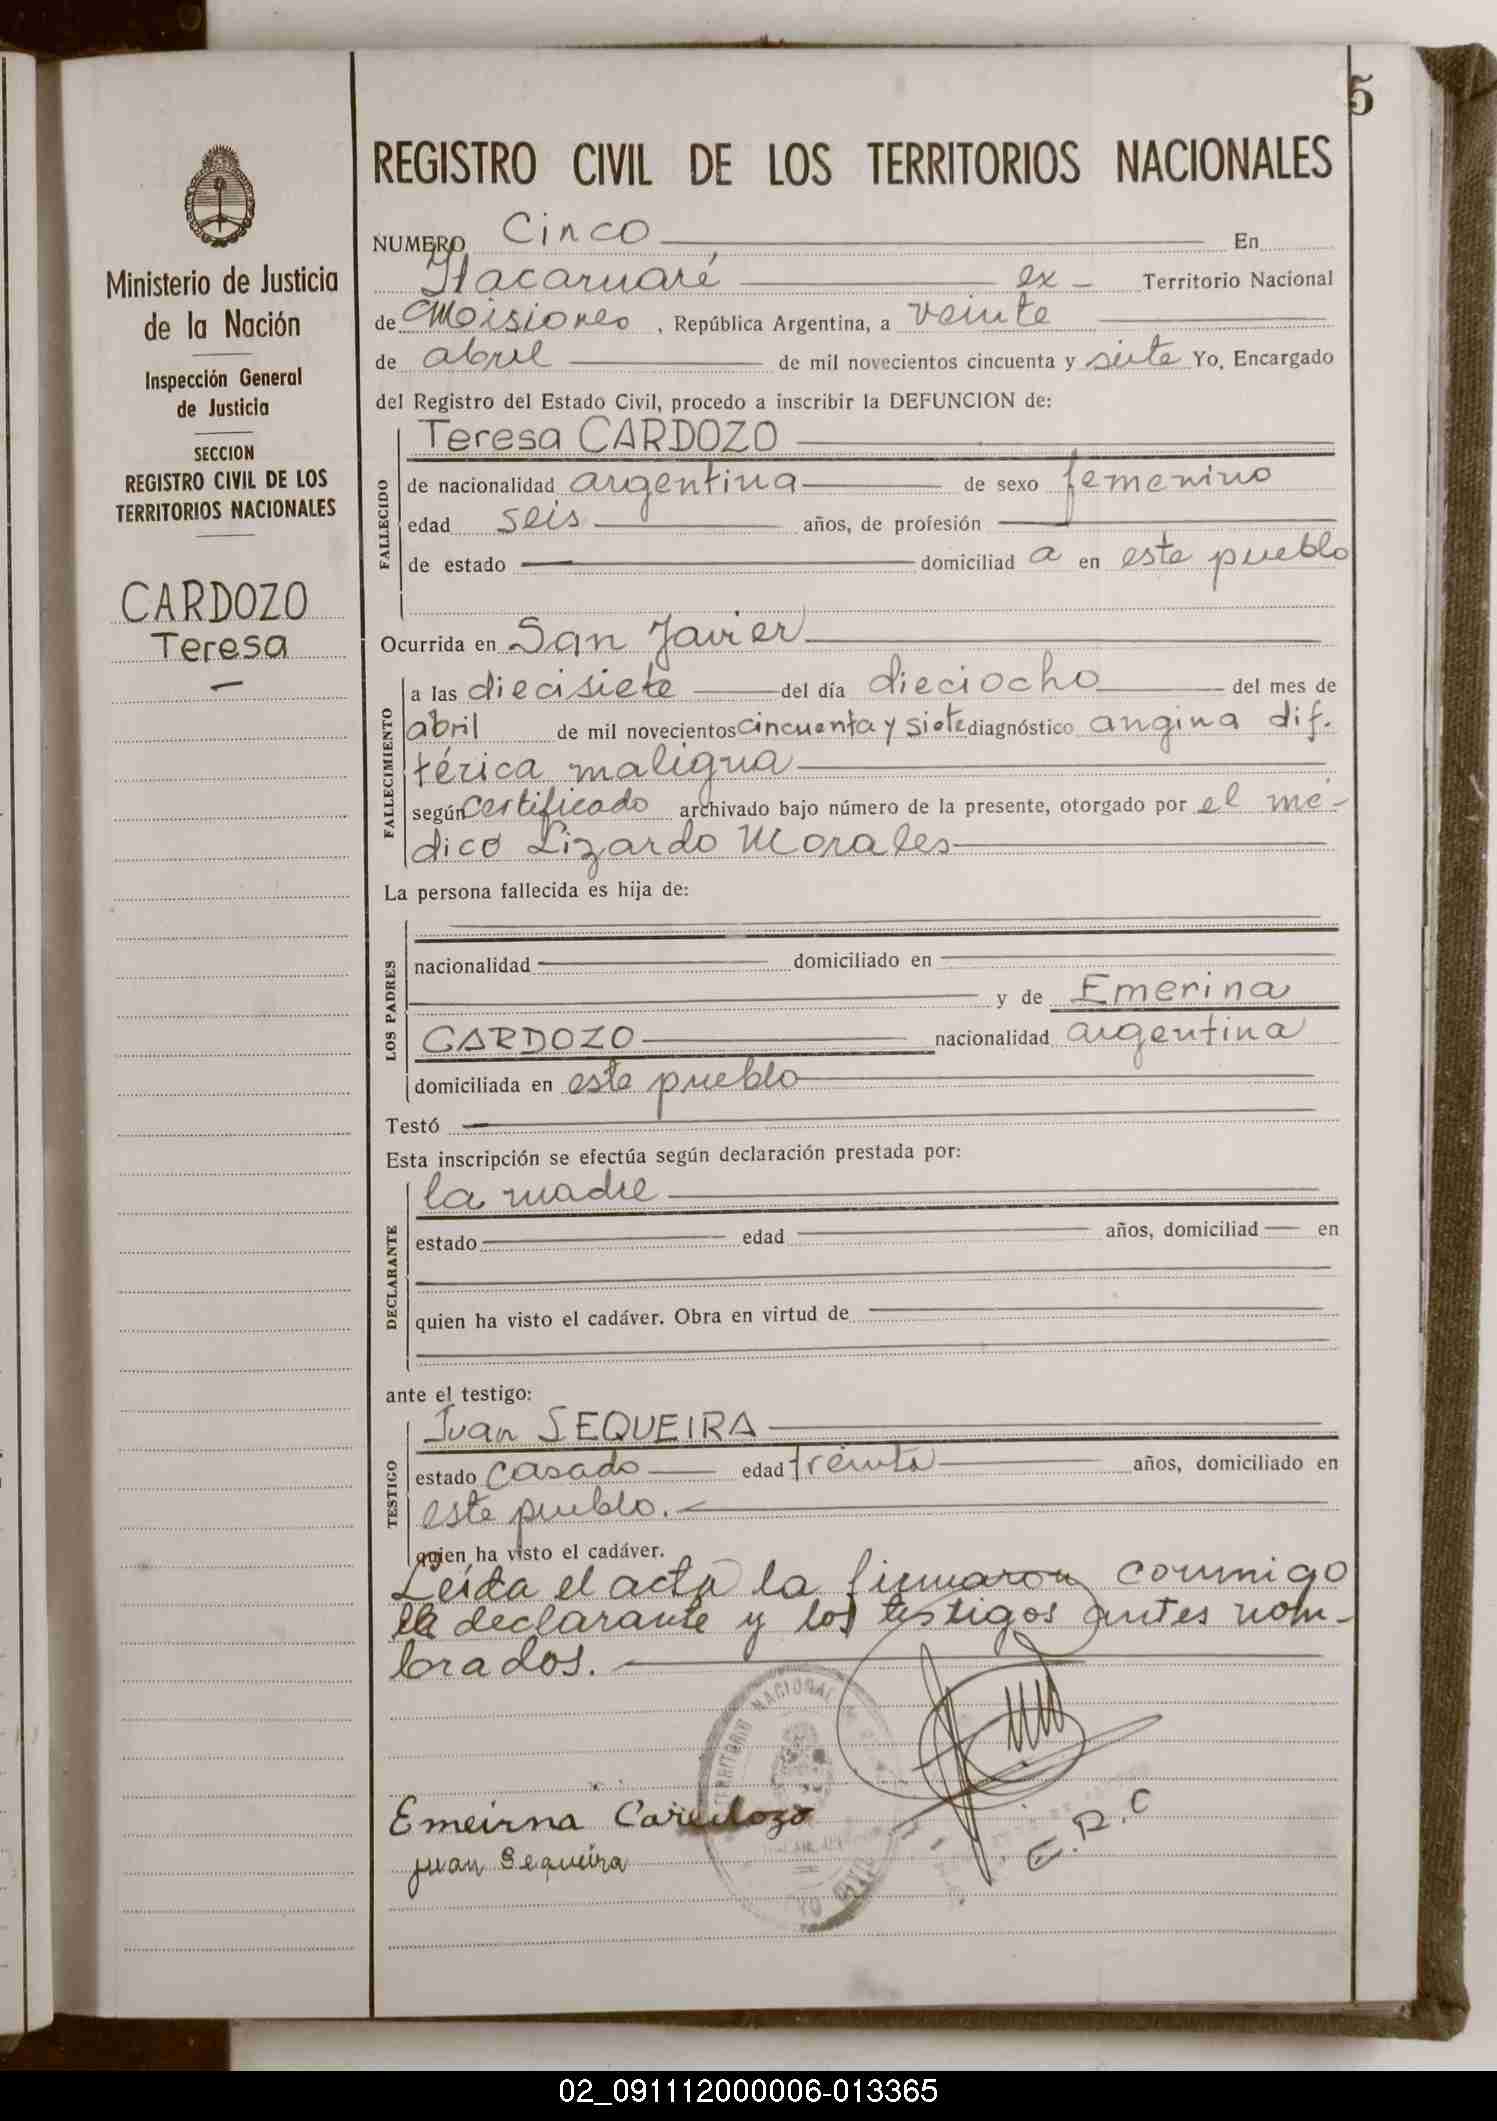 5
Ministerio de Justicia
de la Nación
Inspección General
de Justicia
SECCION
REGISTRO CIVIL DE LOS
TERRITORIOS NACIONALES
CARDOZO
Teresa
REGISTRO CIVIL DE LOS TERRITORIOS NACIONALES
NUMERO Cinco En
Itacaruaré ex - Territorio Nacional
de Misiones, República Argentina, a veinte
de abril de mil novecientos cincuenta y siete Yo, Encargado
del Registro del Estado Civil, procedo a inscribir la DEFUNCION de:
FALLECIDO
Teresa CARDOZO
de nacionalidad argentina de sexo femenino
edad seis años, de profesión
de estado domiciliad a en este pueblo
Ocurrida en San Javier
FALLECIMIENTO
a las diecisiete del día dieciocho del mes de
abril de mil novecientos cincuenta y siete diagnóstico angina dif-
térica maligna
según certificado archivado bajo número de la presente, otorgado por el mé-
dico Lizardo Morales
La persona fallecida es hija de:
LOS PADRES
nacionalidad domiciliado en
y de Emerina
CARDOZO nacionalidad argentina
domiciliada en este pueblo
Testó
Esta inscripción se efectúa según declaración prestada por:
DECLARANTE
la madre
estado edad años, domiciliad en
quien ha visto el cadáver. Obra en virtud de
ante el testigo:
TESTIGO
Juan SEQUEIRA
estado casado edad treinta años, domiciliado en
este pueblo.
quien ha visto el cadáver.
Leída el acta la firmaron conmigo
la declarante y los testigos antes nom-
brados.
TERRITORIO NACIONAL
Emeirna Cardozo
Juan Sequeira
E.R.C
02_091112000006-013365